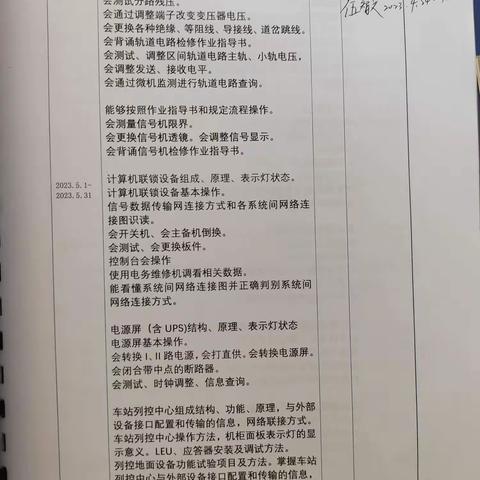 会测试分路残压。
会通过调整端子改变变压器电压。
会更换各种绝缘、等阻线、导接线、道岔跳线。
会背诵轨道电路检修作业指导书。
会测试、调整区间轨道电路主轨、小轨电压，
会调整发送、接收电平。
会通过微机监测进行轨道电路查询。
能够按照作业指导书和规定流程操作。
会测量信号机限界。
会更换信号机透镜。会调整信号显示。
会背诵信号机检修作业指导书。
2023.5.1-
2023.5.31
计算机联锁设备组成、原理、表示灯状态。
计算机联锁设备基本操作。
信号数据传输网连接方式和各系统间网络连
接图识读。
会开关机、会主备机倒换。
会测试、会更换板件。
控制台会操作
使用电务维修机调看相关数据。
能看懂系统间网络连接图并正确判别系统间
网络连接方式。
电源屏（含 UPS)结构、原理、表示灯状态
电源屏基本操作。
会转换 I、II 路电源，会打直供。会转换电源屏。
会闭合带中点的断路器。
会测试、时钟调整、信息查询。
车站列控中心组成结构、功能、原理，与外部
设备接口配置和传输的信息，网络联接方式。
车站列控中心操作方法，机柜面板表示灯的显
示意义。LEU、应答器安装及调试方法。
列控地面设备功能试验项目及方法。掌握车站
列控中心与外部设备接口配置和传输的信息，